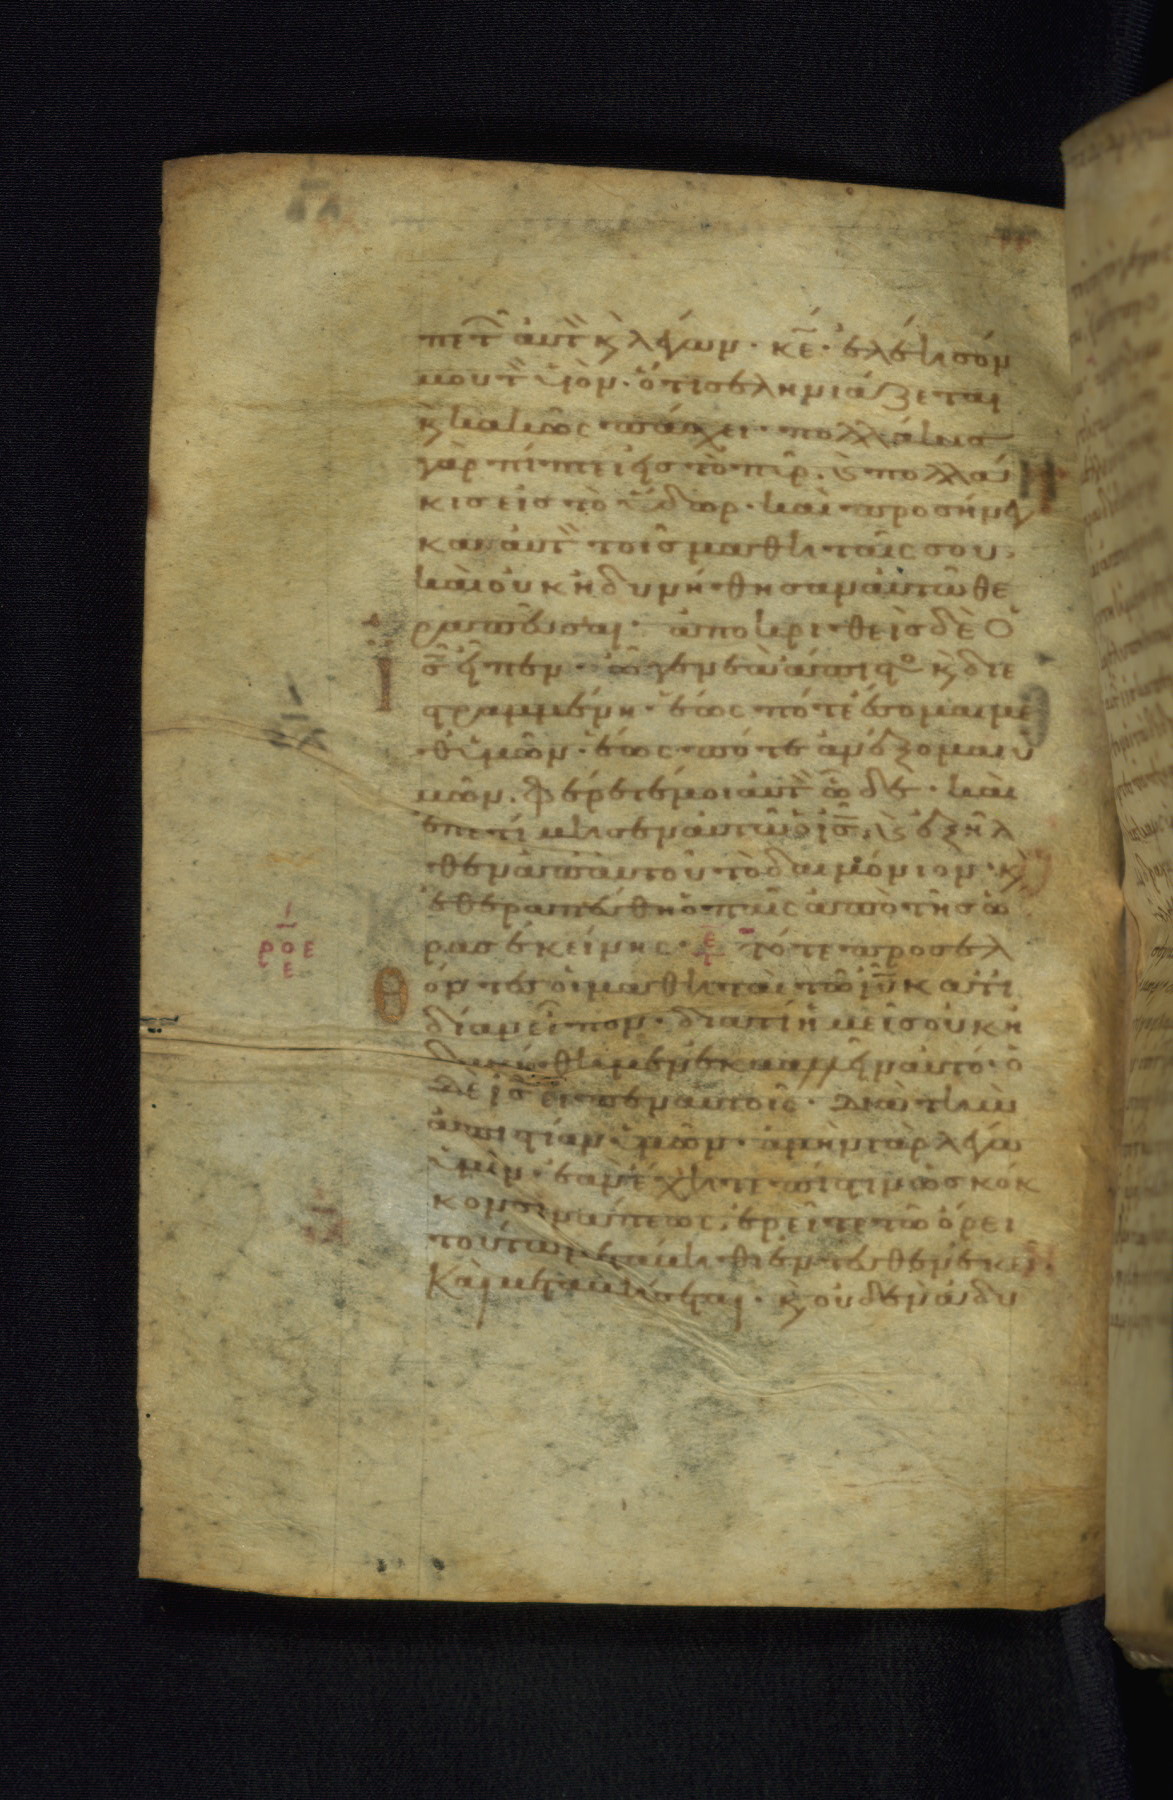 πετ͂ αυτ̀ κ̀ λέγων · κε̄ · ἐλέησόν
μου τ̀ ϋἱὸν · ὅτι σεληνιάζεται
κ̀ κακῶς πάσχει · πολλάκισ
γὰρ πίπτει εἰς τὸ πῦρ · κ̀ πολλά
κισ εἰσ τὸ ὕδωρ · καὶ προσήνεγ
κα αὐτ̀ τοῖσ μαθηταῖς σου ·
καὶ οὐκ ἠδυνήθησαν αὐτῶ θε
ραπεῦσαι · ἀποκριθεὶσ δὲ ὁ
ι̅σ̅ εἶπεν · ὦ γενεὰ ἄπιστο κ̀ διε
στραμμένη · ἕως πότε ἔσομαι με
θ ὑμῶν · ἕως πότε ἀνέξομαι ὑ
μῶν · φέρετέ μοι αὐτ̀ ὧδε · καὶ
ἐπετίμησεν αὐτῶ ὁ ι̅σ̅ · κ̀ ἐξῆλ
θεν ἀπ αὐτοῦ τὸ δαιμόνιον · κ̀
ἐθεραπεύθη ὁ παῖς ἀπὸ τῆσ ὥ
ρασ ἐκείνης · τότε προσελ
ροε
ε
Θ
όντεσ οἱ μαθηταὶ τῶ ι̅υ̅ κατ ἰ
δίαν εἶπον · διατί ἡμεῖσ οὐκ ἠ
δυνήθημεν ἐκβαλεῖν αὐτό · ὁ
δὲ ι̅σ̅ εἶπεν αὐτοῖς · διὰ τὴν
ἀπιστίαν ὑμῶν · ἀμὴν γὰρ λέγω
ὑμῖν · ἐὰν ἔχητε πίστιν ὡσ κόκ
κον σινάπεως, ἐρεῖτε τῶ ὄρει
τούτω μετάβηθι ἐντεῦθεν ἐκεῖ ·
Καὶ μεταβήσεται · κ̀ οὐδὲν ἀδυ